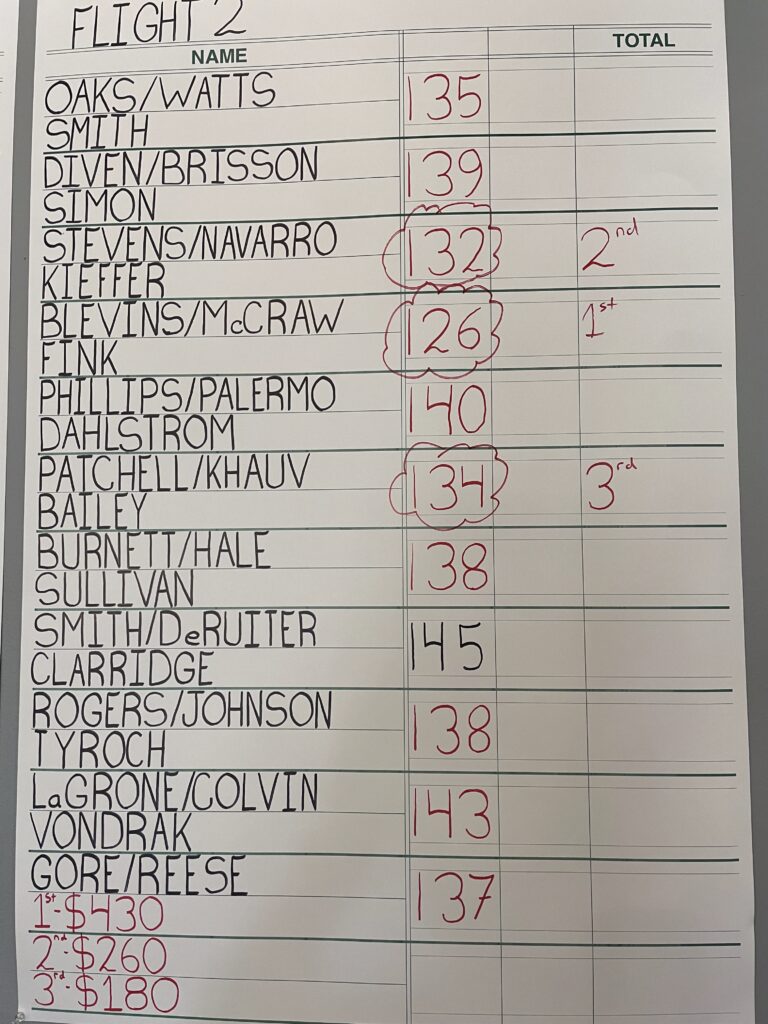 FLIGHT 2
NAME TOTAL
OAKS/WATTS 135
SMITH
DIVEN/BRISSON 139
SIMON
STEVENS/NAVARRO 132 2nd
KIEFFER
BLEVINS/McCRAW 126 1st
FINK
PHILLIPS/PALERMO 140
DAHLSTROM
PATCHELL/KHAUV 134 3rd
BAILEY
BURNETT/HALE 138
SULLIVAN
SMITH/DeRUITER 145
CLARRIDGE
ROGERS/JOHNSON 138
TYROCH
LaGRONE/COLVIN 143
VONDRAK
GORE/REESE 137
1st-$430
2nd-$260
3rd-$180